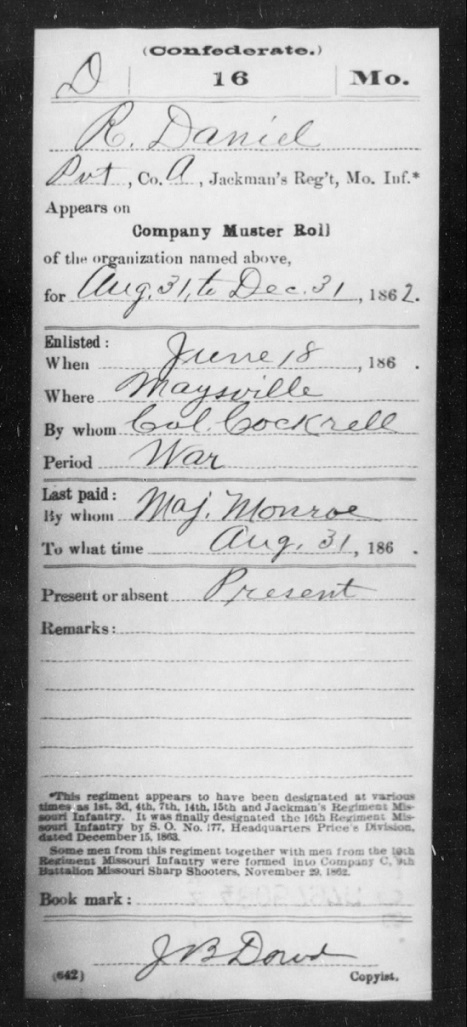 (Confederate.)
D | 16 | Mo.
R. Daniel
Pvt, Co. A, Jackman's Reg't, Mo. Inf.*
Appears on
Company Muster Roll
of the organization named above,
for Aug. 31, to Dec. 31, 1862.
Enlisted:
When June 18, 186 .
Where Maysville
By whom Col. Cockrell
Period War
Last paid:
By whom Maj. Monroe
To what time Aug. 31, 186 .
Present or absent Present
Remarks:
*This regiment appears to have been designated at various
times as 1st, 3d, 4th, 7th, 14th, 15th and Jackman's Regiment Mis-
souri Infantry. It was finally designated the 16th Regiment Mis-
souri Infantry by S. O. No. 177, Headquarters Price's Division,
dated December 15, 1863.
Some men from this regiment together with men from the
Regiment Missouri Infantry were formed into Company C, 9th
Battalion Missouri Sharp Shooters, November 29, 1862.
Book mark:
J B Dowd
(642) Copyist.